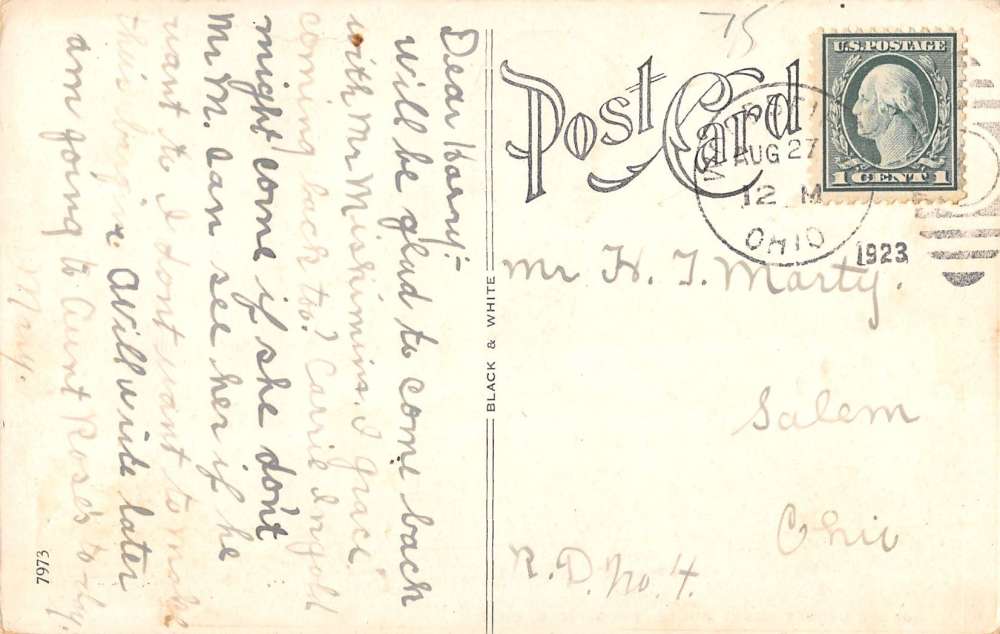 Dear Harry:-
will be glad to come back
with Mr Mishimins. I
coming back to? Carrie Ingold
might come if she don't
Mr M. can see her if he
want to I don't want to make
this
Will write later
am going to Aunt Rose's to-dy.
Mary.
7973
BLACK & WHITE
75
Post Card
U.S. POSTAGE
1 CENT 1
AUG 27
12 M
OHIO
1923
Mr H. J. Marty.
Salem
Ohio
R.D. No. 4.